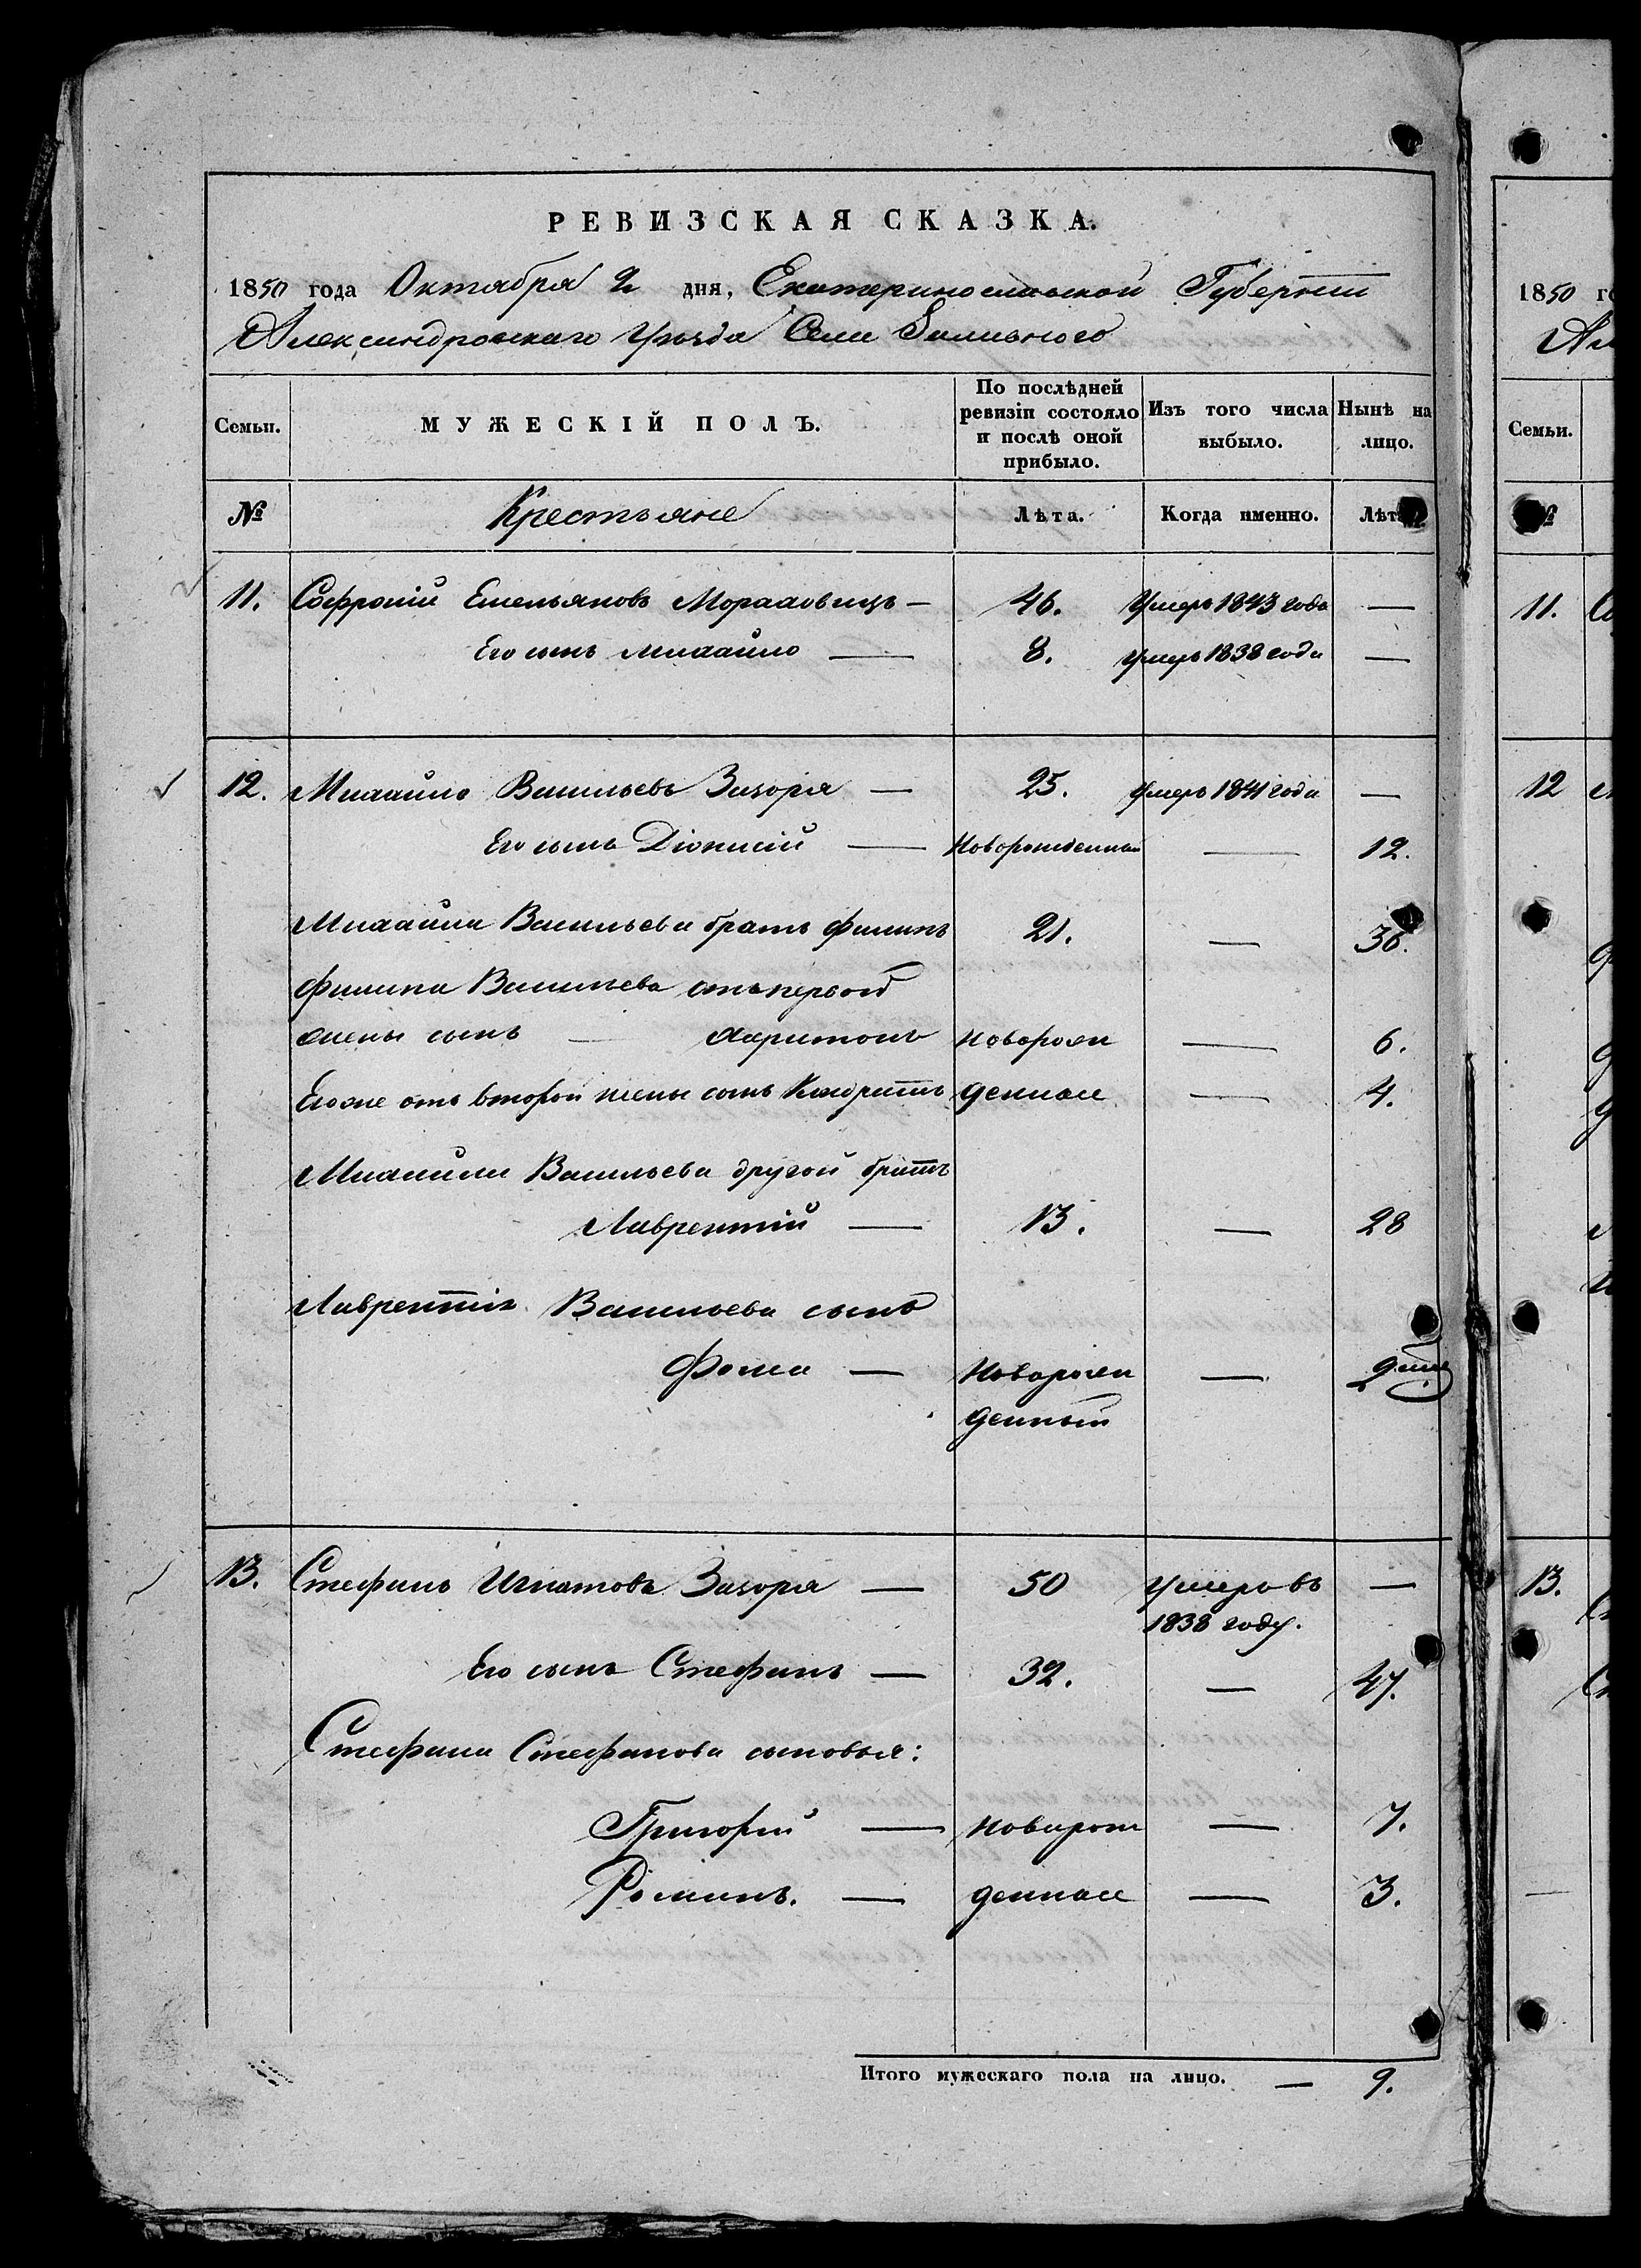 РЕВИЗСКАЯ СКАЗКА.
1850 года Октября 2 дня, Екатеринославской Губерніи
Александровскаго Уѣзда Села
Семьи.
МУЖЕСКІЙ ПОЛЪ.
По послѣдней ревизіи состояло и послѣ оной прибыло.
Изъ того числа выбыло.
Нынѣ на лицо.
№ Крестьяне Лѣта. Когда именно. Лѣт
11. Софроній Емельяновъ — 46. Умеръ 1843 года —
Его сынъ Михайло — 8. Умеръ 1838 года —
12. Михайло Васильевъ Загоря — 25. Умеръ 1841 года —
Его сынъ Діонисій — Новорожденный — 12.
Михайла Васильева братъ Филипъ 21. — 36.
Филипа Васильева отъ первой
жены сынъ — Харитонъ Новорож — 6.
Его же отъ второй жены сынъ Кондратъ денные — 4.
Михайла Васильева другой братъ
Лаврентій — 13. — 28
Лаврентія Васильева сынъ
Фома — Новорож —
денный
13. Стефанъ Игнатовъ Загоря — 50 Умеръ въ —
1838 году.
Его сынъ Стефанъ — 32. — 47.
Стефана Стефанова сыновья:
Григорій — Новорож — 7.
Романъ. — денные — 3.
Итого мужескаго пола на лицо. — 9.
1850 г
Ал
Семьи.
№
11.
12
13.